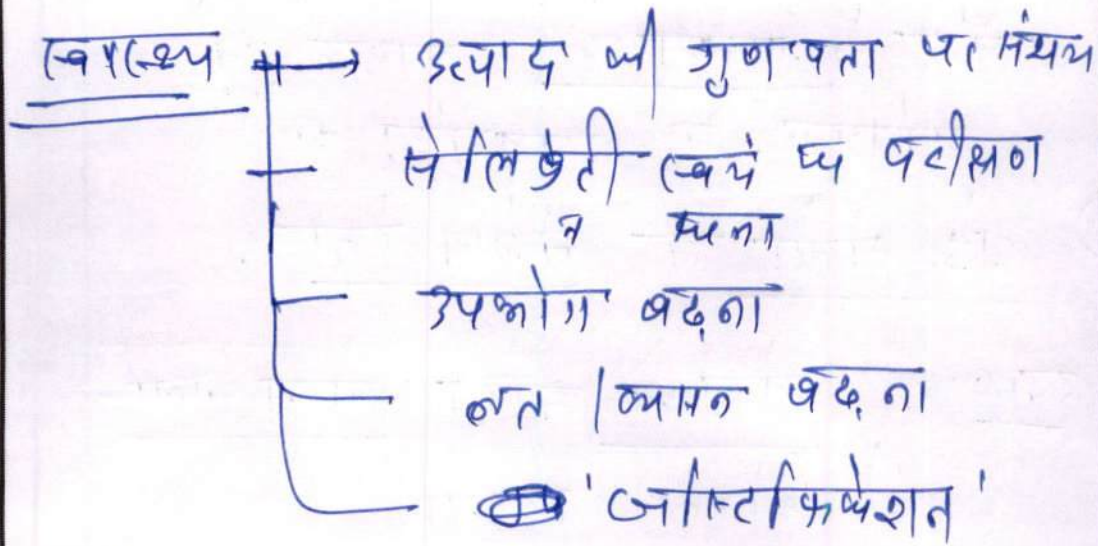 स्वास्थ्य → उत्पाद की गुणवत्ता पर संशय
सेलिब्रेटी स्वयं पर परीक्षण
न करना
उपभोग बढ़ना
लत / व्यसन बढ़ना
'जस्टिफिकेशन'